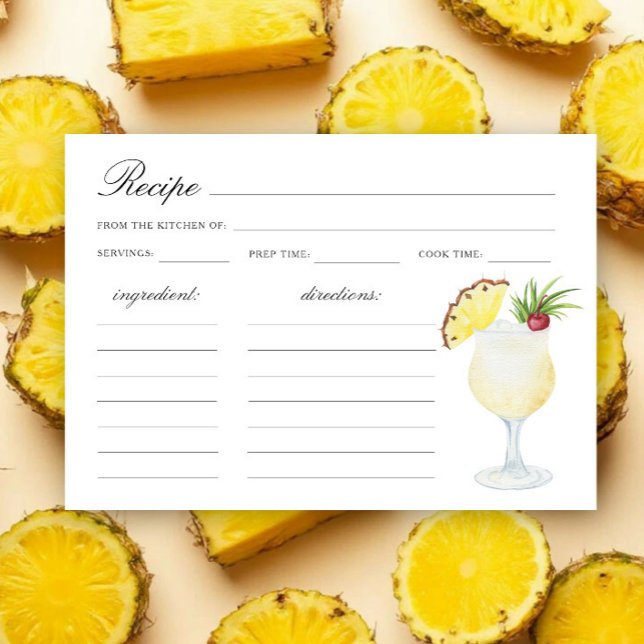 Recipe
FROM THE KITCHEN OF:
SERVINGS: PREP TIME: COOK TIME:
ingredient: directions: